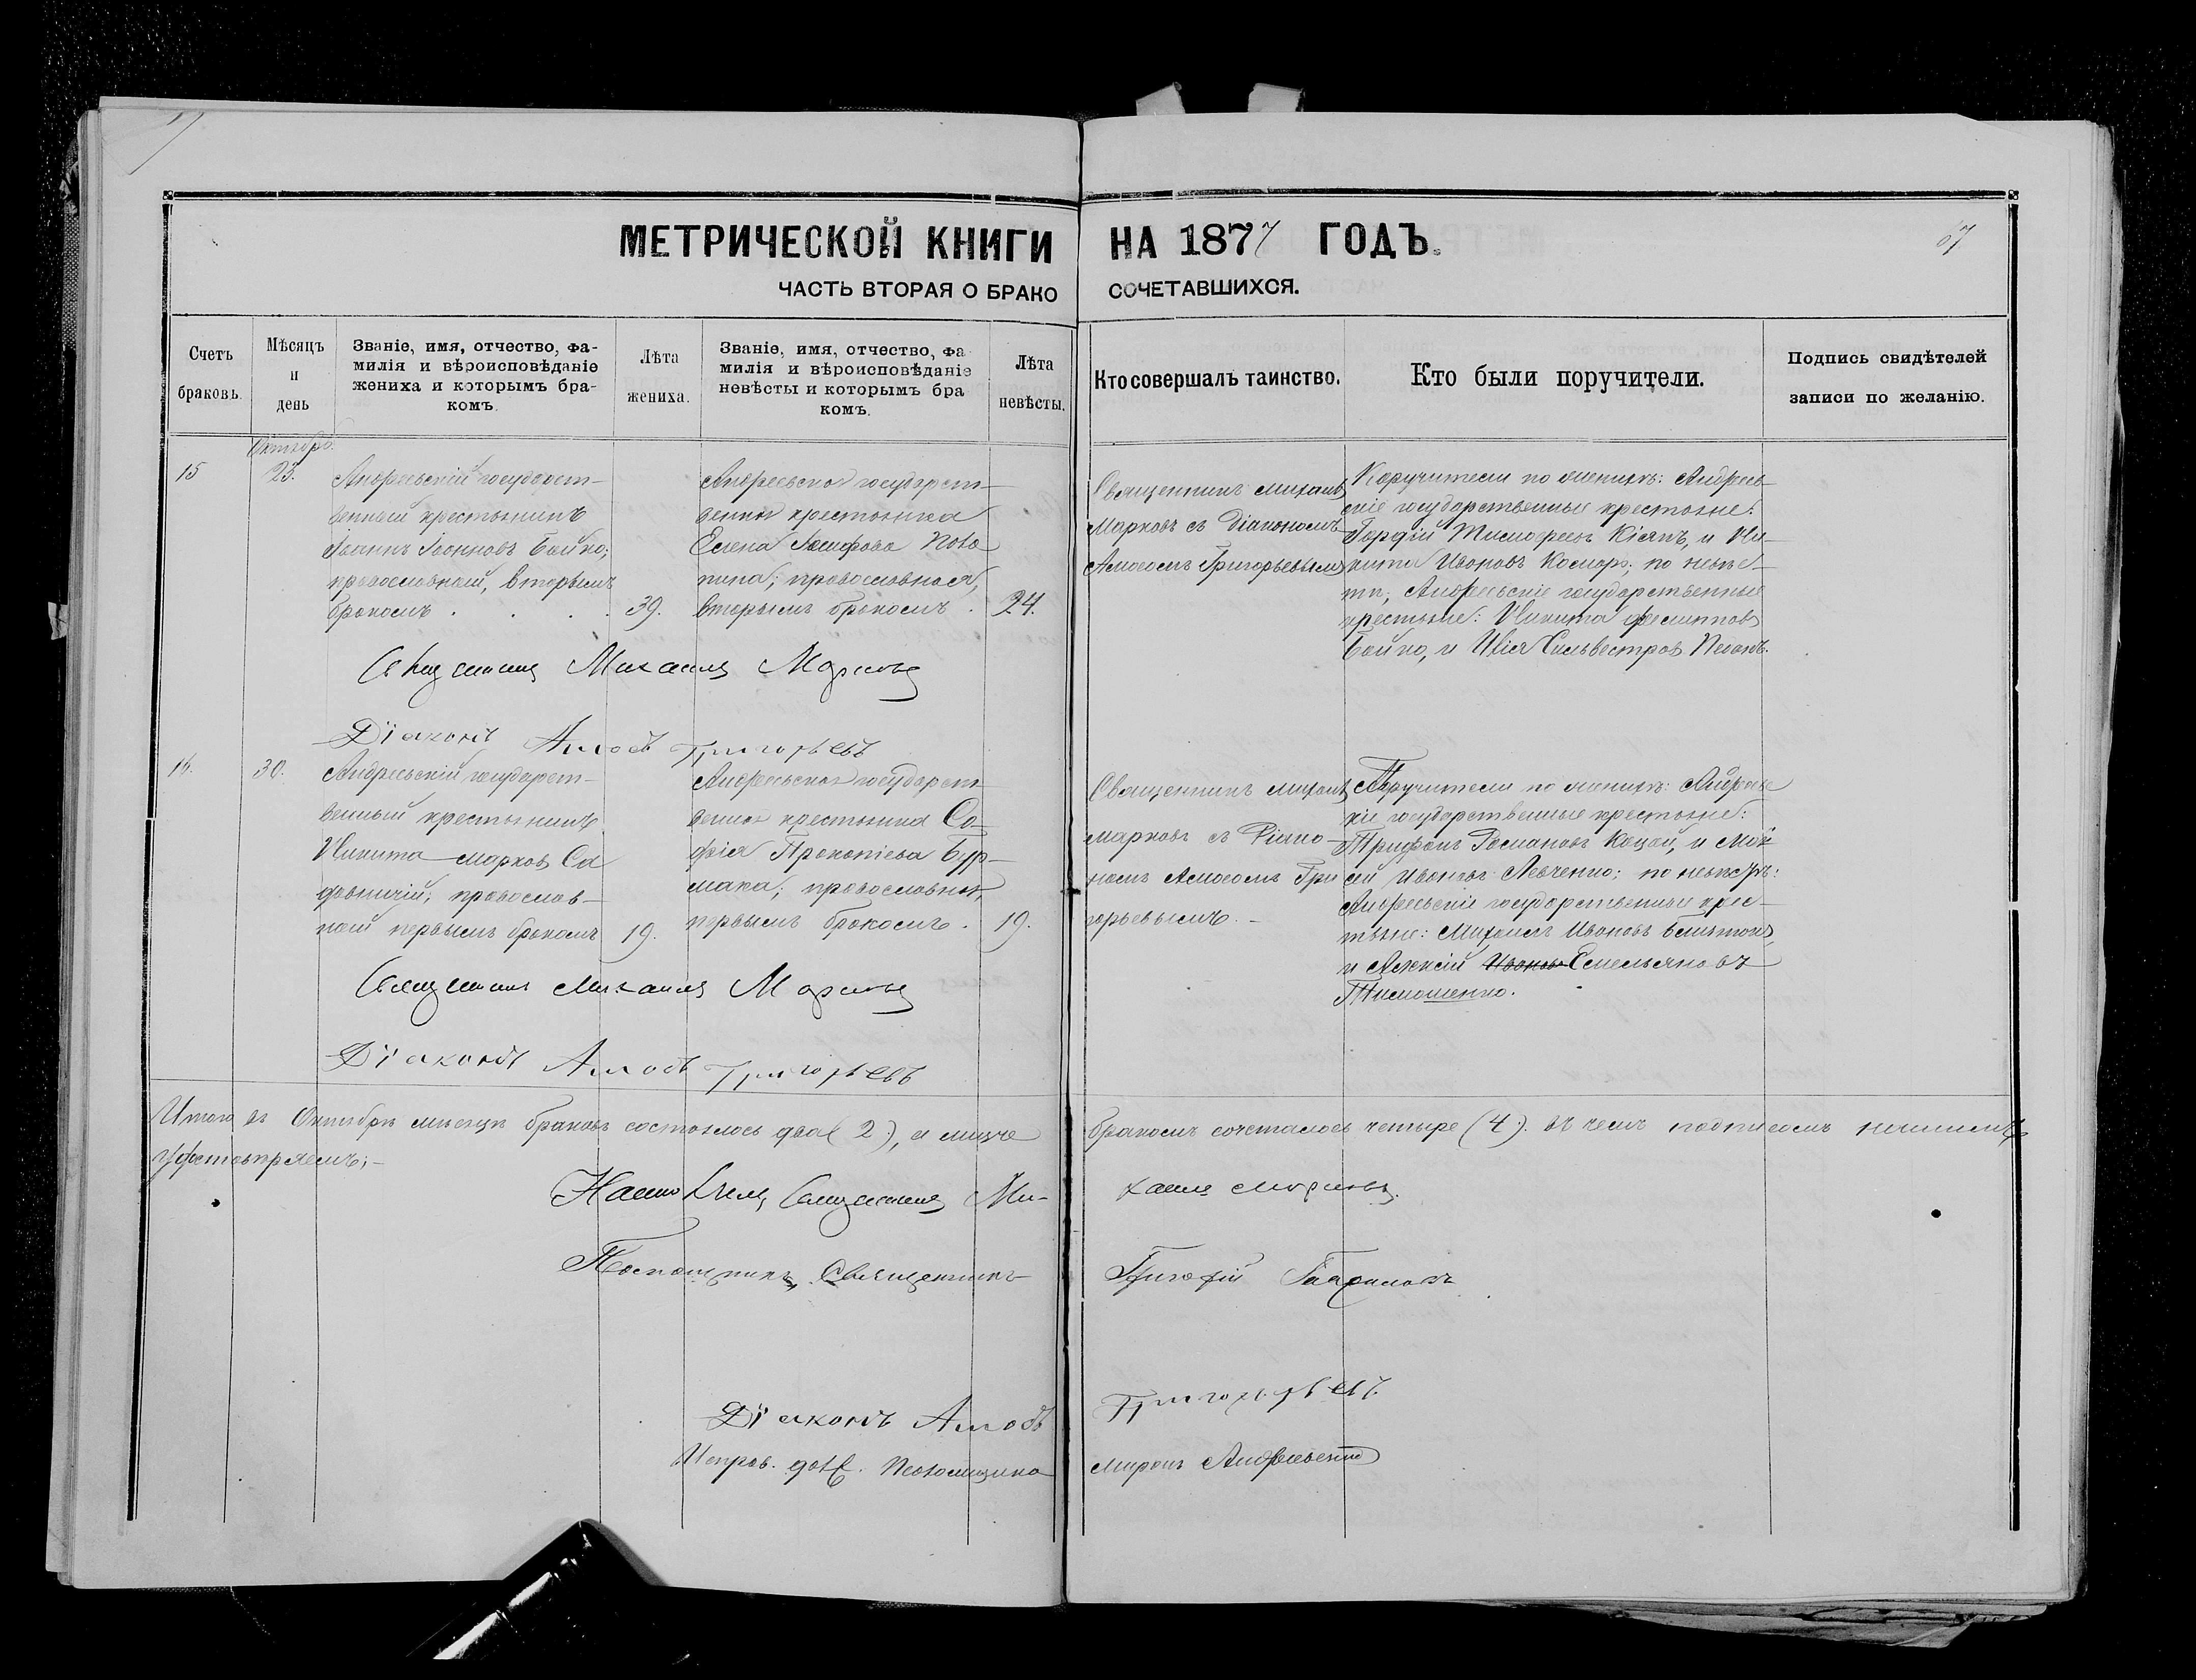 МЕТРИЧЕСКОЙ КНИГИ НА 1877 ГОДЪ.
ЧАСТЬ ВТОРАЯ О БРАКО СОЧЕТАВШИХСЯ.
67
Счетъ браковъ.
Мѣсяцъ и день
Званіе, имя, отчество, фа-
милія и вѣроисповѣданіе
жениха и которымъ бра-
комъ.
Лѣта жениха.
Званіе, имя, отчество, фа
милія и вѣроисповѣданіе
невѣсты и которымъ бра
комъ.
Лѣта невѣсты.
Кто совершалъ таинство.
Кто были поручители.
Подпись свидѣтелей
записи по желанію.
Октября
15
23.
Андреевскій государст-
венный крестьянинъ
Іоаннъ Іоанновъ Бойко;
православный, вторымъ
бракомъ . . . .
39.
Андреевская государст-
венная крестьянка
Елена
православная,
вторымъ бракомъ .
24.
Священникъ Михаилъ
Марковъ съ Діакономъ
Амосомъ Григорьевымъ
Поручители по женихѣ: Андреев
скіе государственные крестьяне:
и Ни-
кита Ивановъ по невѣс-
тѣ; Андреевскіе государственные
крестьяне: Никита
Бойко, и Илія Сильвестровъ
Священникъ Михаилъ Марковъ
Діаконъ Амосъ Григорьевъ
16.
30.
Андреевскій государст-
венный крестьянинъ
Никита Марковъ Са
довничій; православ-
ный первымъ бракомъ
19.
Андреевская государст
венная крестьянка Со-
фія Прокопіева Бур-
лака; православная,
первымъ бракомъ .
19.
Священникъ Михаилъ
Марковъ съ Діако-
номъ Амосомъ Гри
горьевымъ. -
Поручители по женихѣ: Андреевс
кіе государственные крестьяне:
Трифонъ Романовъ Коцой, и Мой
сей Ивановъ Левченко; по невѣстѣ:
Андреевскіе государственные крес-
тьяне: Михаилъ Ивановъ
и Алексій Ивановъ Емельяновъ
Тимошенко.
Священникъ Михаилъ Марковъ
Діаконъ Амосъ Григорьевъ
Итого въ Октябрѣ мѣсяцѣ браковъ состоялось два (2), а лицъ бракомъ сочеталось четыре (4). въ чемъ подписомъ нашимъ
удостовѣряемъ; -
Настоятель Священникъ Ми- хаилъ Марковъ.
Помощникъ, Священникъ Григорій Гавриловъ
Діаконъ Амосъ Григорьевъ.
Исправ. долж. Псаломщика Миронъ Андріевскій